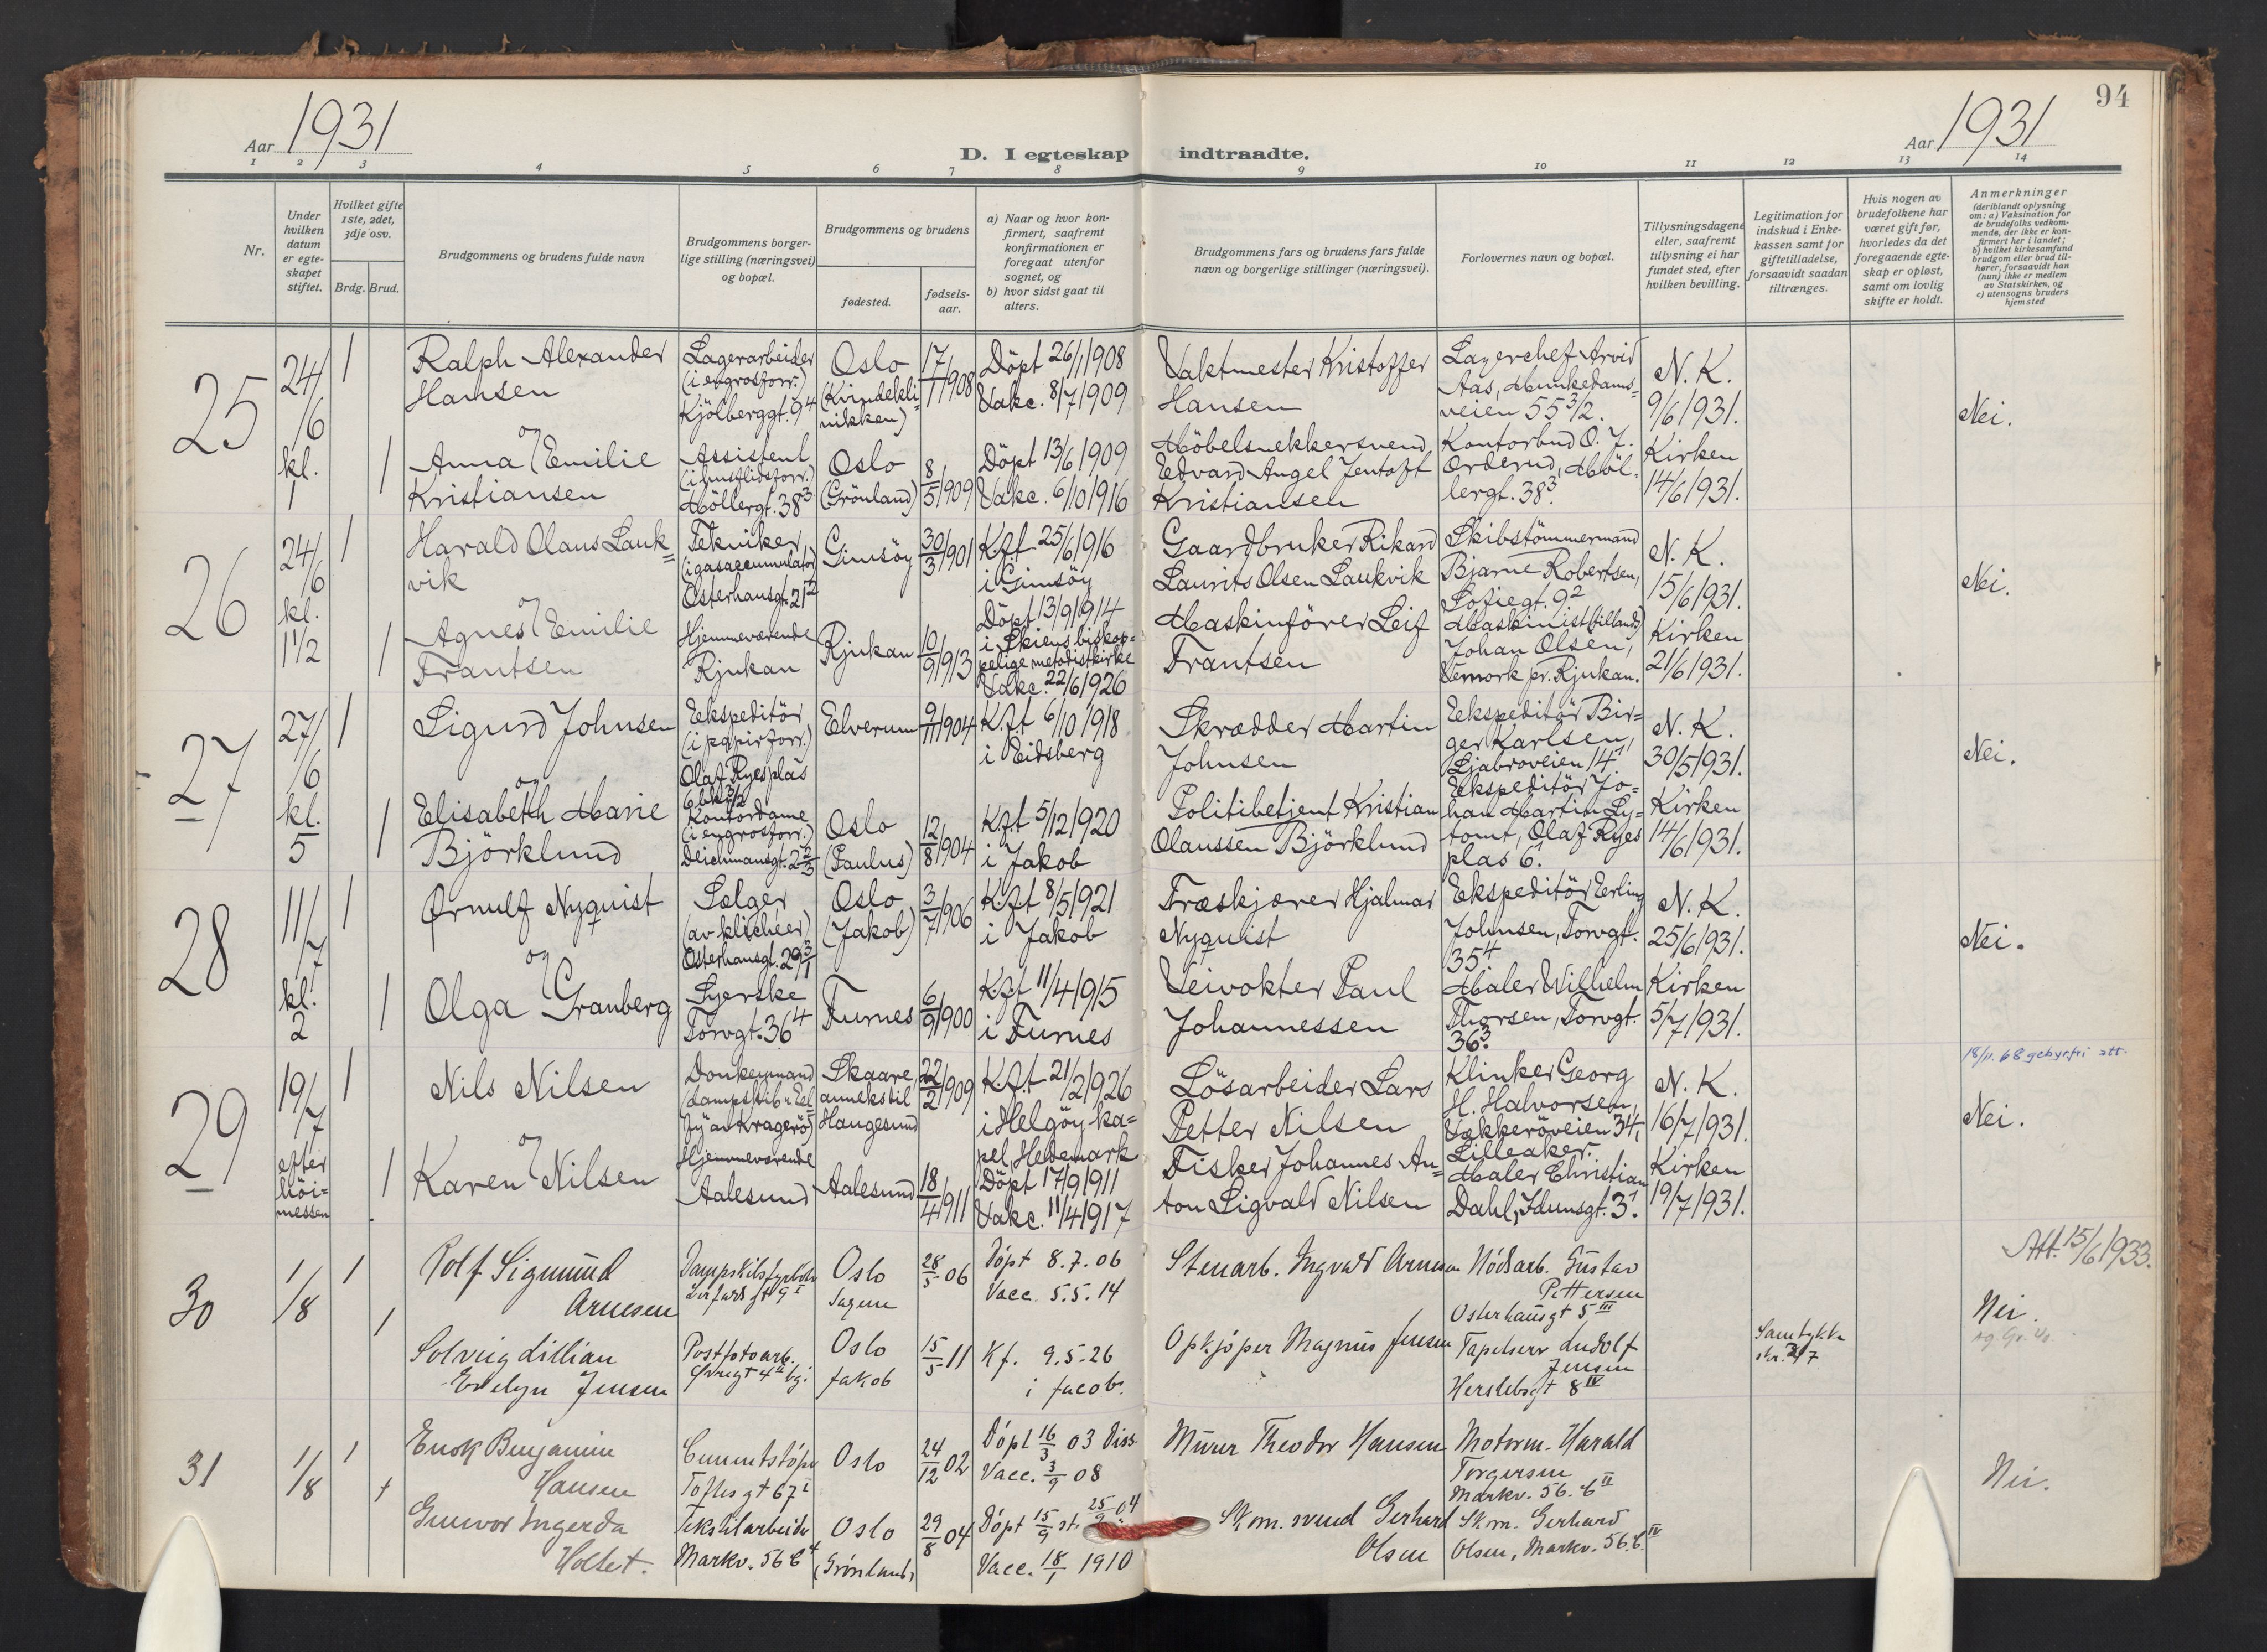 94
Aar 1931
D. I egteskap indtraadte.
Aar 1931
1 2 3 4 5 6 7 8 9 10 11 12 13 14
Nr.
Under hvilken datum er egte-skapet stiftet.
Hvilket gifte 1ste, 2det, 3dje osv.
Brdg. Brud.
Brudgommens og brudens fulde navn
Brudgommens borger-lige stilling (næringsvei) og bopæl.
Brudgommens og brudens
fødested.
fødsels-aar.
a) Naar og hvor kon-firmert, saafremt konfirmationen er foregaat utenfor sognet, og
b) hvor sidst gaat til alters.
Brudgommens fars og brudens fars fulde navn og borgerlige stillinger (næringsvei).
Forlovernes navn og bopæl.
Tillysningsdagene eller, saafremt tillysning ei har fundet sted, efter hvilken bevilling.
Legitimation for indskud i Enke-kassen samt for giftetilladelse, forsaavidt saadan tiltrænges.
Hvis nogen av brudefolkene har været gift før, hvorledes da det foregaaende egte-skap er opløst, samt om lovlig skifte er holdt.
Anmerkninger
(deriblandt oplysning om: a) Vaksination for de brudefolks vedkom-mende, der ikke er kon-firmert her i landet; b) hvilket kirkesamfund brudgom eller brud til-hører, forsaavidt han (hun) ikke er medlem av Statskirken, og c) utensogns bruders hjemsted
25
24/6 kl. 1
1
Ralph Alexander
Hansen
Lagerarbeider
(i engrosforr.)
Kjölberggt. 9 4
Oslo
(Kvindekli-
nikken)
17/1 1908
Döpt 26/1 1908
Vakc. 8/7 1909
Vaktmester Kristoffer
Hansen
Lagerchef Arvid
Aas, Munkedams=
veien 55 3/2.
N. K.
9/6 1931.
Nei.
1
og
Anna Emilie
Kristiansen
Assistent
(i husflidsforr.)
Möllergt. 38 3
Oslo
(Grönland)
8/5 1909
Döpt 13/6 1909
Vakc. 6/10 1916
Möbelsnekkersvend
Edvard Angel Jentoft
Kristiansen
Kontorbud O. J.
Orderud, Möl-
lergt. 38 3.
Kirken
14/6 1931.
26
24/6 kl. 1 1/2
1
Harald Olaus Lauk=
vik
Tekniker
(i gasaccumulator)
Osterhausgt. 21 2
Gimsöy
30/3 1901
Kft 25/6 1916
i Gimsöy
Gaardbruker Rikard
Laurits Olsen Laukvik
Skibstömmermand
Bjarne Robertsen,
Sofiegt. 9 2
N. K.
15/6 1931.
Nei.
1
og
Agnes Emilie
Frantsen
Hjemmeværende
Rjukan
Rjukan
10/9 1913
Döpt 13/9 1914
i Skiens biskop=
pelige metodistkirke
Vakc. 22/6 1926
Maskinförer Leif
Frantsen
Maskinist (tillands)
Johan Olsen,
Vemork pr. Rjukan.
Kirken
21/6 1931.
27
27/6 kl. 5
1
Sigurd Johnsen
Ekspeditör
(i papirforr.)
Olaf Ryes plas
6 bk 3/2
Elverum
9/11 1904
Kft 6/10 1918
i Eidsberg
Skrædder Martin
Johnsen
Ekspeditör Bir=
ger Karlsen,
Ljabroveien 14 1
N. K.
30/5 1931.
Nei.
1
og
Elisabeth Marie
Björklund
Kontordame
(i engrosforr.)
Deichmansgt. 2
Oslo
(Paulus)
12/8 1904
Kft 5/12 1920
i Jakob
Politibetjent Kristian
Olaussen Björklund
Ekspeditör Jo=
han Martin Ly=
tomt, Olaf Ryes
plas 6.
Kirken
14/6 1931.
28
11/7 kl. 2
1
Ørnulf Nyquist
Sælger
(av klicheer)
Osterhausgt. 29 3/1
Oslo
(Jakob)
3/7 1906
Kft 8/5 1921
i Jakob
Træskjærer Hjalmar
Nyquist
Ekspeditör Erling
Johnsen, Torvgt.
35 4
N. K.
25/6 1931.
Nei.
1
og
Olga Granberg
Syerske
Torvgt. 36 4
Furnes
6/9 1900
Kft 11/4 1915
i Furnes
Veivokter Paul
Johannessen
Maler Wilhelm
Thorsen, Torvgt.
36 3.
Kirken
5/7 1931.
29
19/7 efter höi=
messen
1
Nils Nilsen
Donkeymand
(dampskib "Eel
Jy" av Kragerö)
Skaare
annekstil
Haugesund
22/2 1909
Kft 21/2 1926
i Helgöy ka=
pel, Hedemark
Lösarbeider Lars
Petter Nilsen
Klinker Georg
H. Halvorsen,
Vækkeröveien 34,
Lilleaker.
N. K.
16/7 1931.
18/11. 68 gebyrfri att.
Nei.
1
og
Karen Nilsen
Hjemmeværende
Aalesund
Aalesund
18/4 1911
Döpt 17/9 1911
Vakc. 11/4 1917
Fisker Johannes An=
ton Sigvald Nilsen
Maler Christian
Dahl, Idunsgt. 3 1.
Kirken
19/7 1931.
30
1/8
1
Rolf Sigmund
Arnesen
Dampskibsfyrböter
gt 9 I
Oslo
Sagene
28/5 06
Döpt 8.7.06
Vacc. 5.5.14
Stenarb. Ingvald Arnesen
Nödsarb. Gustav
Pettersen
Osterhausgt 5 III
Att. 15/6 1933.
Nei.
1
Solveig Lillian
Evelyn Jensen
Postfotoarb.
Oslo
Jakob
15/5 11
Kf. 9.5.26
i Jacob.
Opkjöper Magnus Jensen
Tapetserer Ludolf
Jensen
Herslebsgt 8 IV
Samtykke
31
1/8
1
Enok Benjamin
Hansen
Cementstöper
Toftesgt 67 I
Oslo
24/12 02
Döpt 16/3 03 Diss.
Vacc. 3/9 08
Murer Theodor Hansen
Motorm. Harald
Torgersen
Markv. 56. b II
Nei.
1
Gunvor Ingerda
Holset.
Tekstilarbeider
Markv. 56 b 4
Oslo
(Grönland)
29/8 04
Döpt 15/9 st. 25/9 04
Vacc. 18/1 1910
Skom. svend Gerhard
Olsen
Skom. Gerhard
Olsen, Markv. 56. b. IV